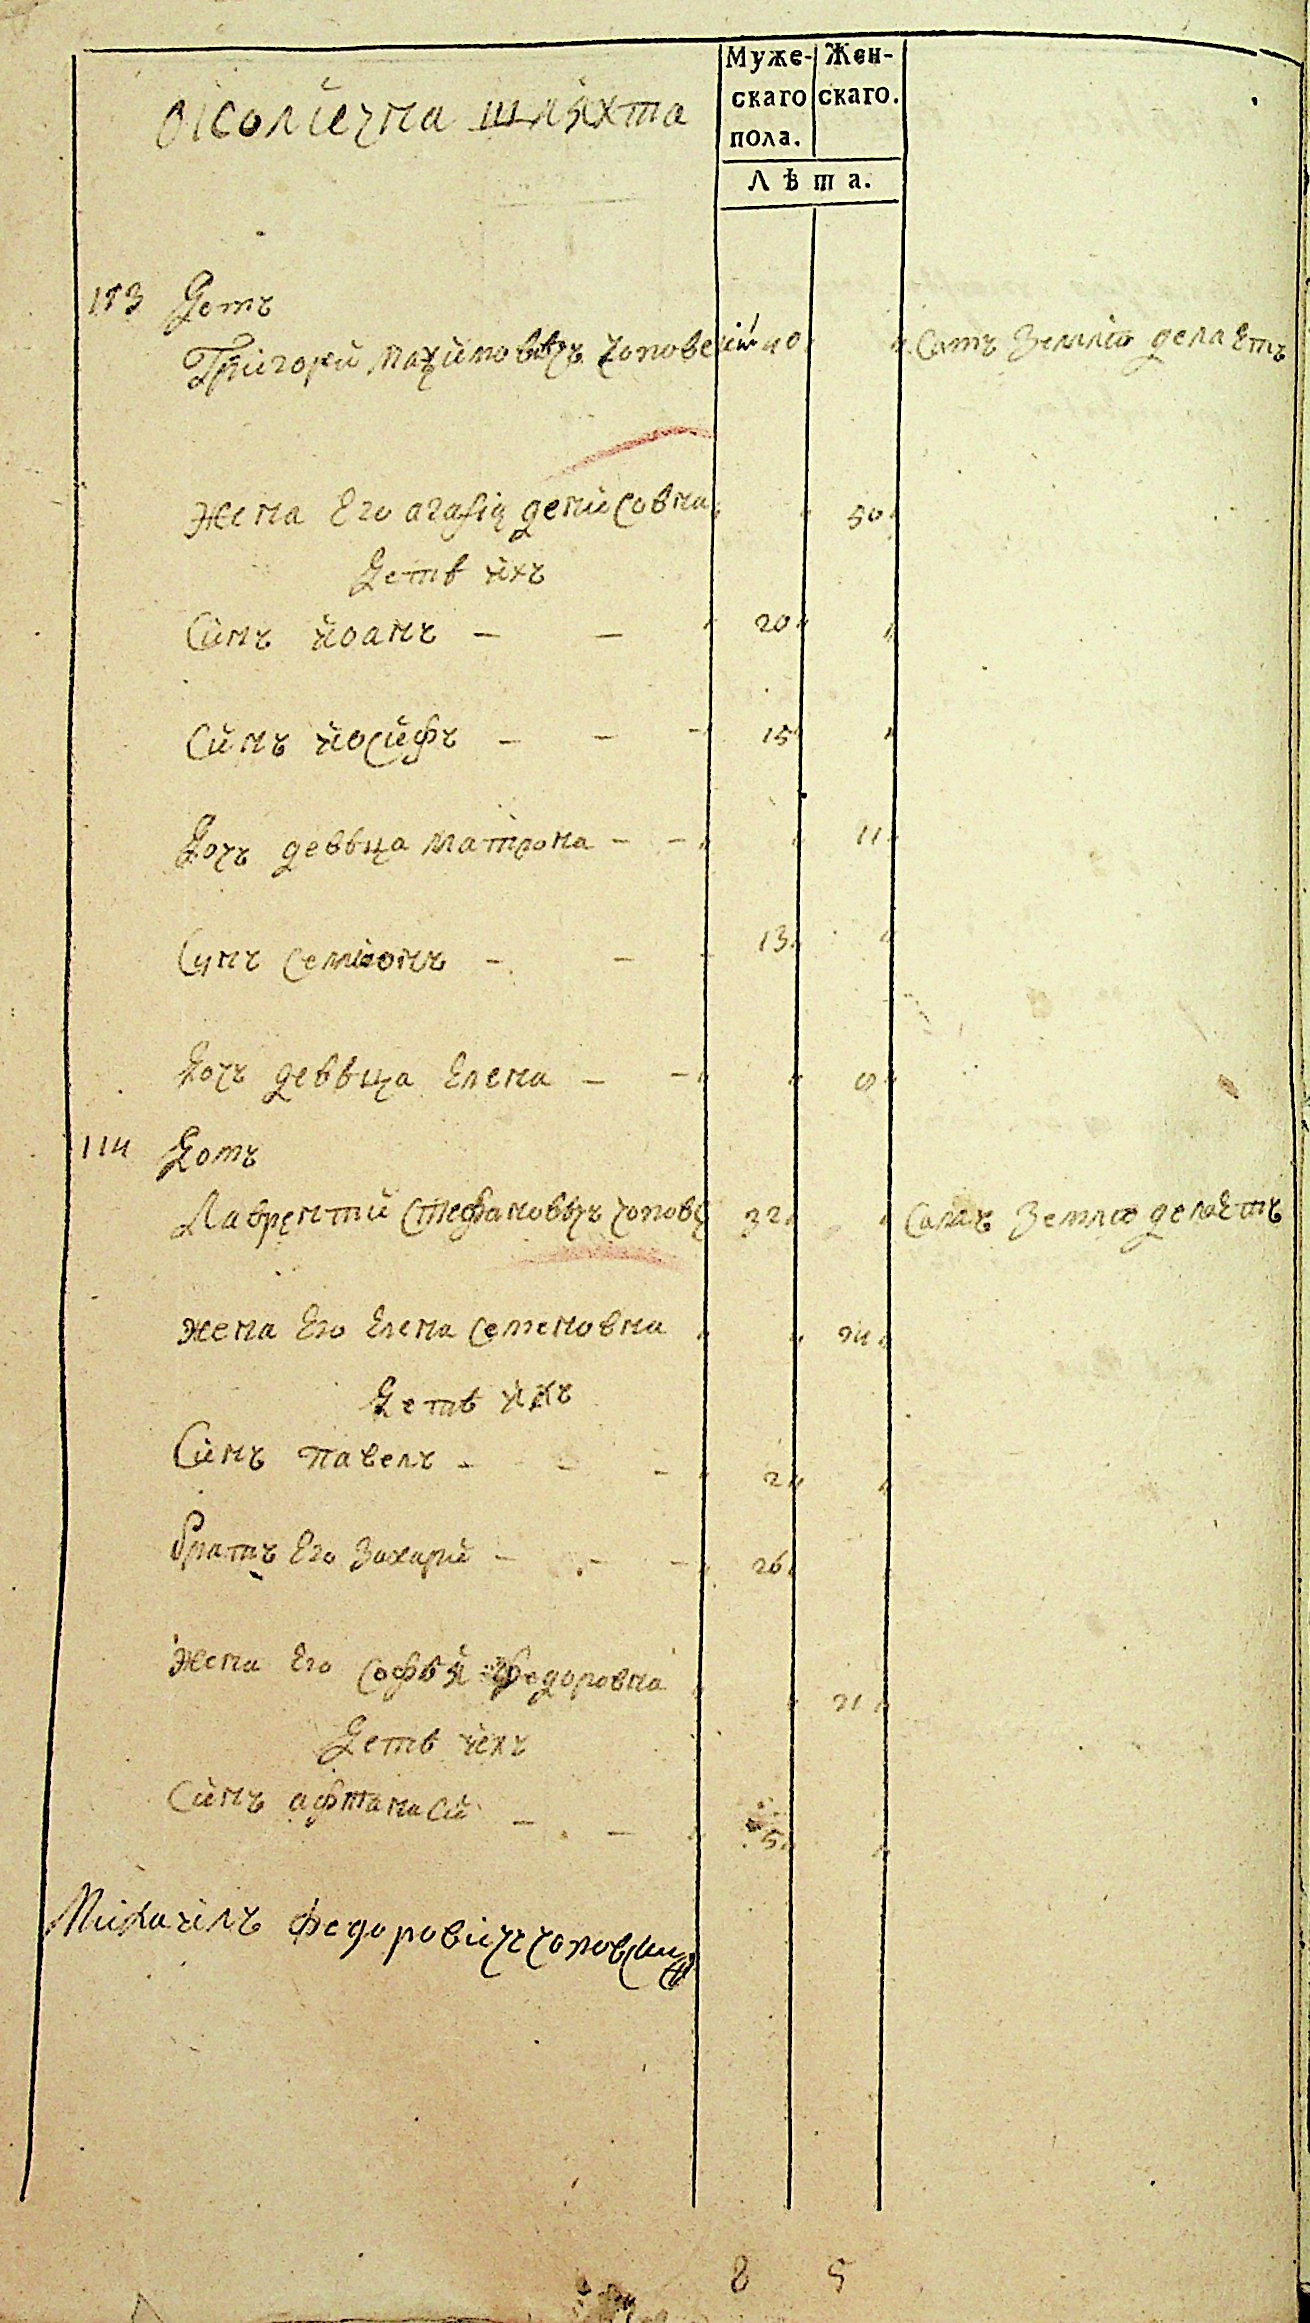 околична шляхта
Муже- Жен-
скаго скаго.
пола.
Лѣта.
113 Домъ
Григорий Махимовичъ Чоповский 40 „ Самъ Землю делаетъ
Жена Его агафія денисовна „ „ 50 „
Детѣ ихъ
Синъ йоанъ — — „ 20 „ „
Синъ йосифъ — — — 15 „ „
Дочъ девѣца матрона — — „ „ 11 „
Сынъ семионъ — — — 13 „ „
Дочъ девѣца Елена — — „ „ 9 „
114 Домъ
Лаврентий Стефановичъ Чоповс 32 „ „ Самъ Землю делаетъ
жена Его Елена семеновна „ „ 24 „
Детѣ ихъ
Синъ павелъ — — — „ 2 „ „
братъ Его Захарий — — — „ 26 „
Жена Его софѣя федоровна „ „ 21 „
Детѣ ихъ
Синъ афтанасий — — „ 5 „ „
Михаилъ Федоровичъ Чоповски
8 5